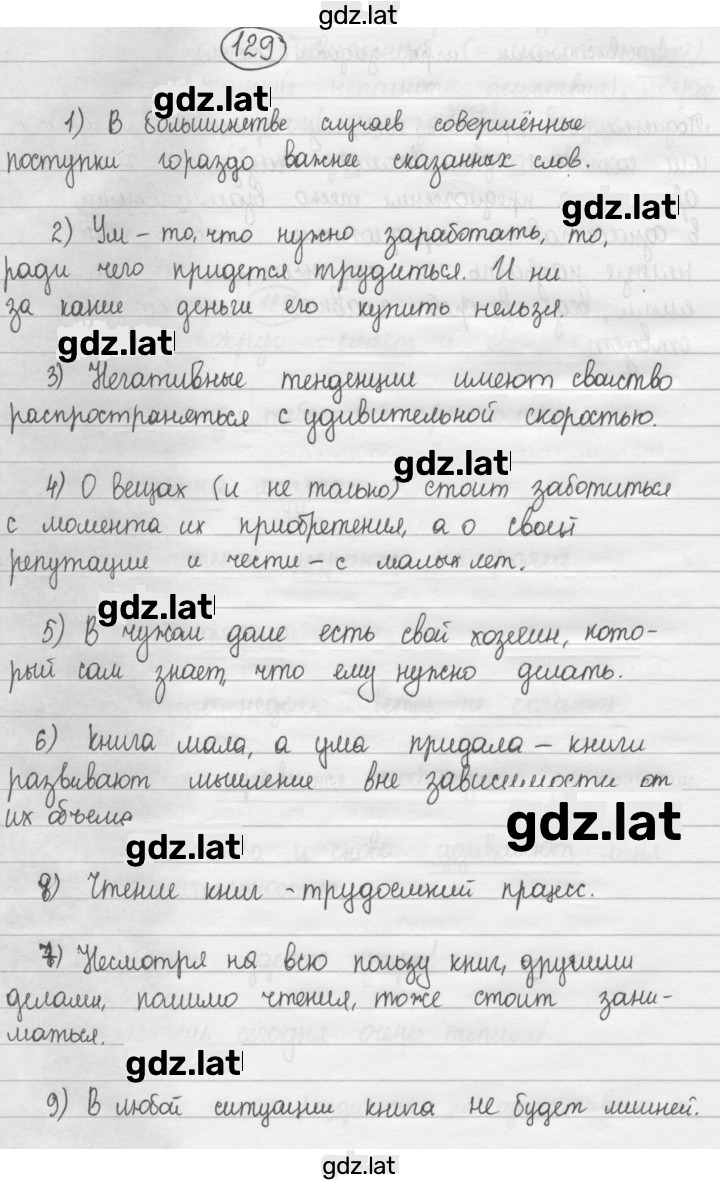 gdz.lat
129
gdz.lat
1) В большинстве случаев совершённые
поступки гораздо важнее сказанных слов.
gdz.lat
2) Ум – то, что нужно заработать, то,
ради чего придется трудиться. И ни
за какие деньги его купить нельзя.
gdz.lat
3) Негативные тенденции имеют свойство
распространяться с удивительной скоростью.
gdz.lat
4) О вещах (и не только) стоит заботиться
с момента их приобретения, а о своей
репутации и чести – с малых лет.
gdz.lat
5) В чужом доме есть свой хозяин, кото-
рый сам знает, что ему нужно делать.
6) Книга мала, а ума придала – книги
развивают мышление вне зависимости от
их объема
gdz.lat
gdz.lat
8) Чтение книг - трудоемкий процесс.
7) Несмотря на всю пользу книг, другими
делами, помимо чтения, тоже стоит зани-
маться.
gdz.lat
9) В любой ситуации книга не будет лишней.
gdz.lat